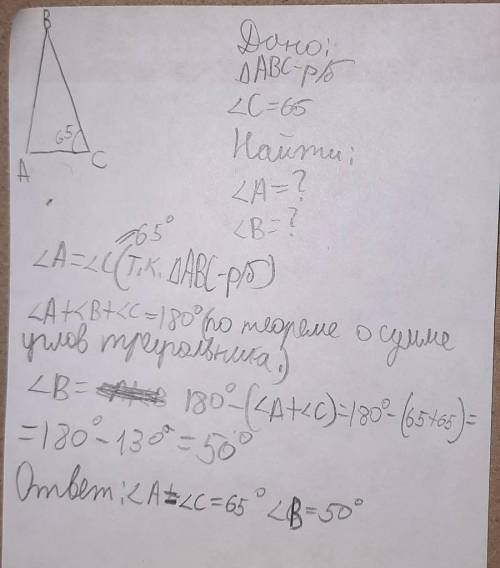 B
65
A
C
Дано:
△ABC-р/б
∠C=65
Найти:
∠A=?
∠B=?
=65°
∠A=∠C(т.к. △ABC-р/б)
∠A+∠B+∠C=180°(по теореме о сумме
углов треугольника.)
∠B= 180°-(∠A+∠C)=180°-(65+65)=
=180°-130°=50°
Ответ:∠A=∠C=65° ∠B=50°